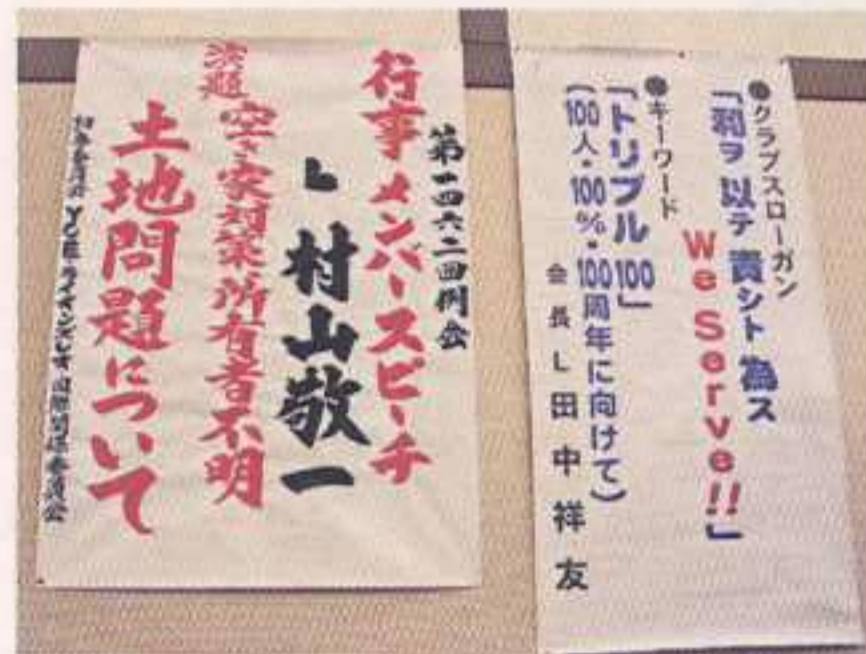 ●クラブスローガン
「和ヲ以テ貴シト為ス
We Serve!!」
●キーワード
「トリプル100」
(100人・100%・100周年に向けて)
会長 L 田中祥友
第一四六二回例会
行事 メンバースピーチ
L 村山敬一
演題 空き家対策所有者不明
土地問題について
YCE・ライオンズレオ国際関係委員会